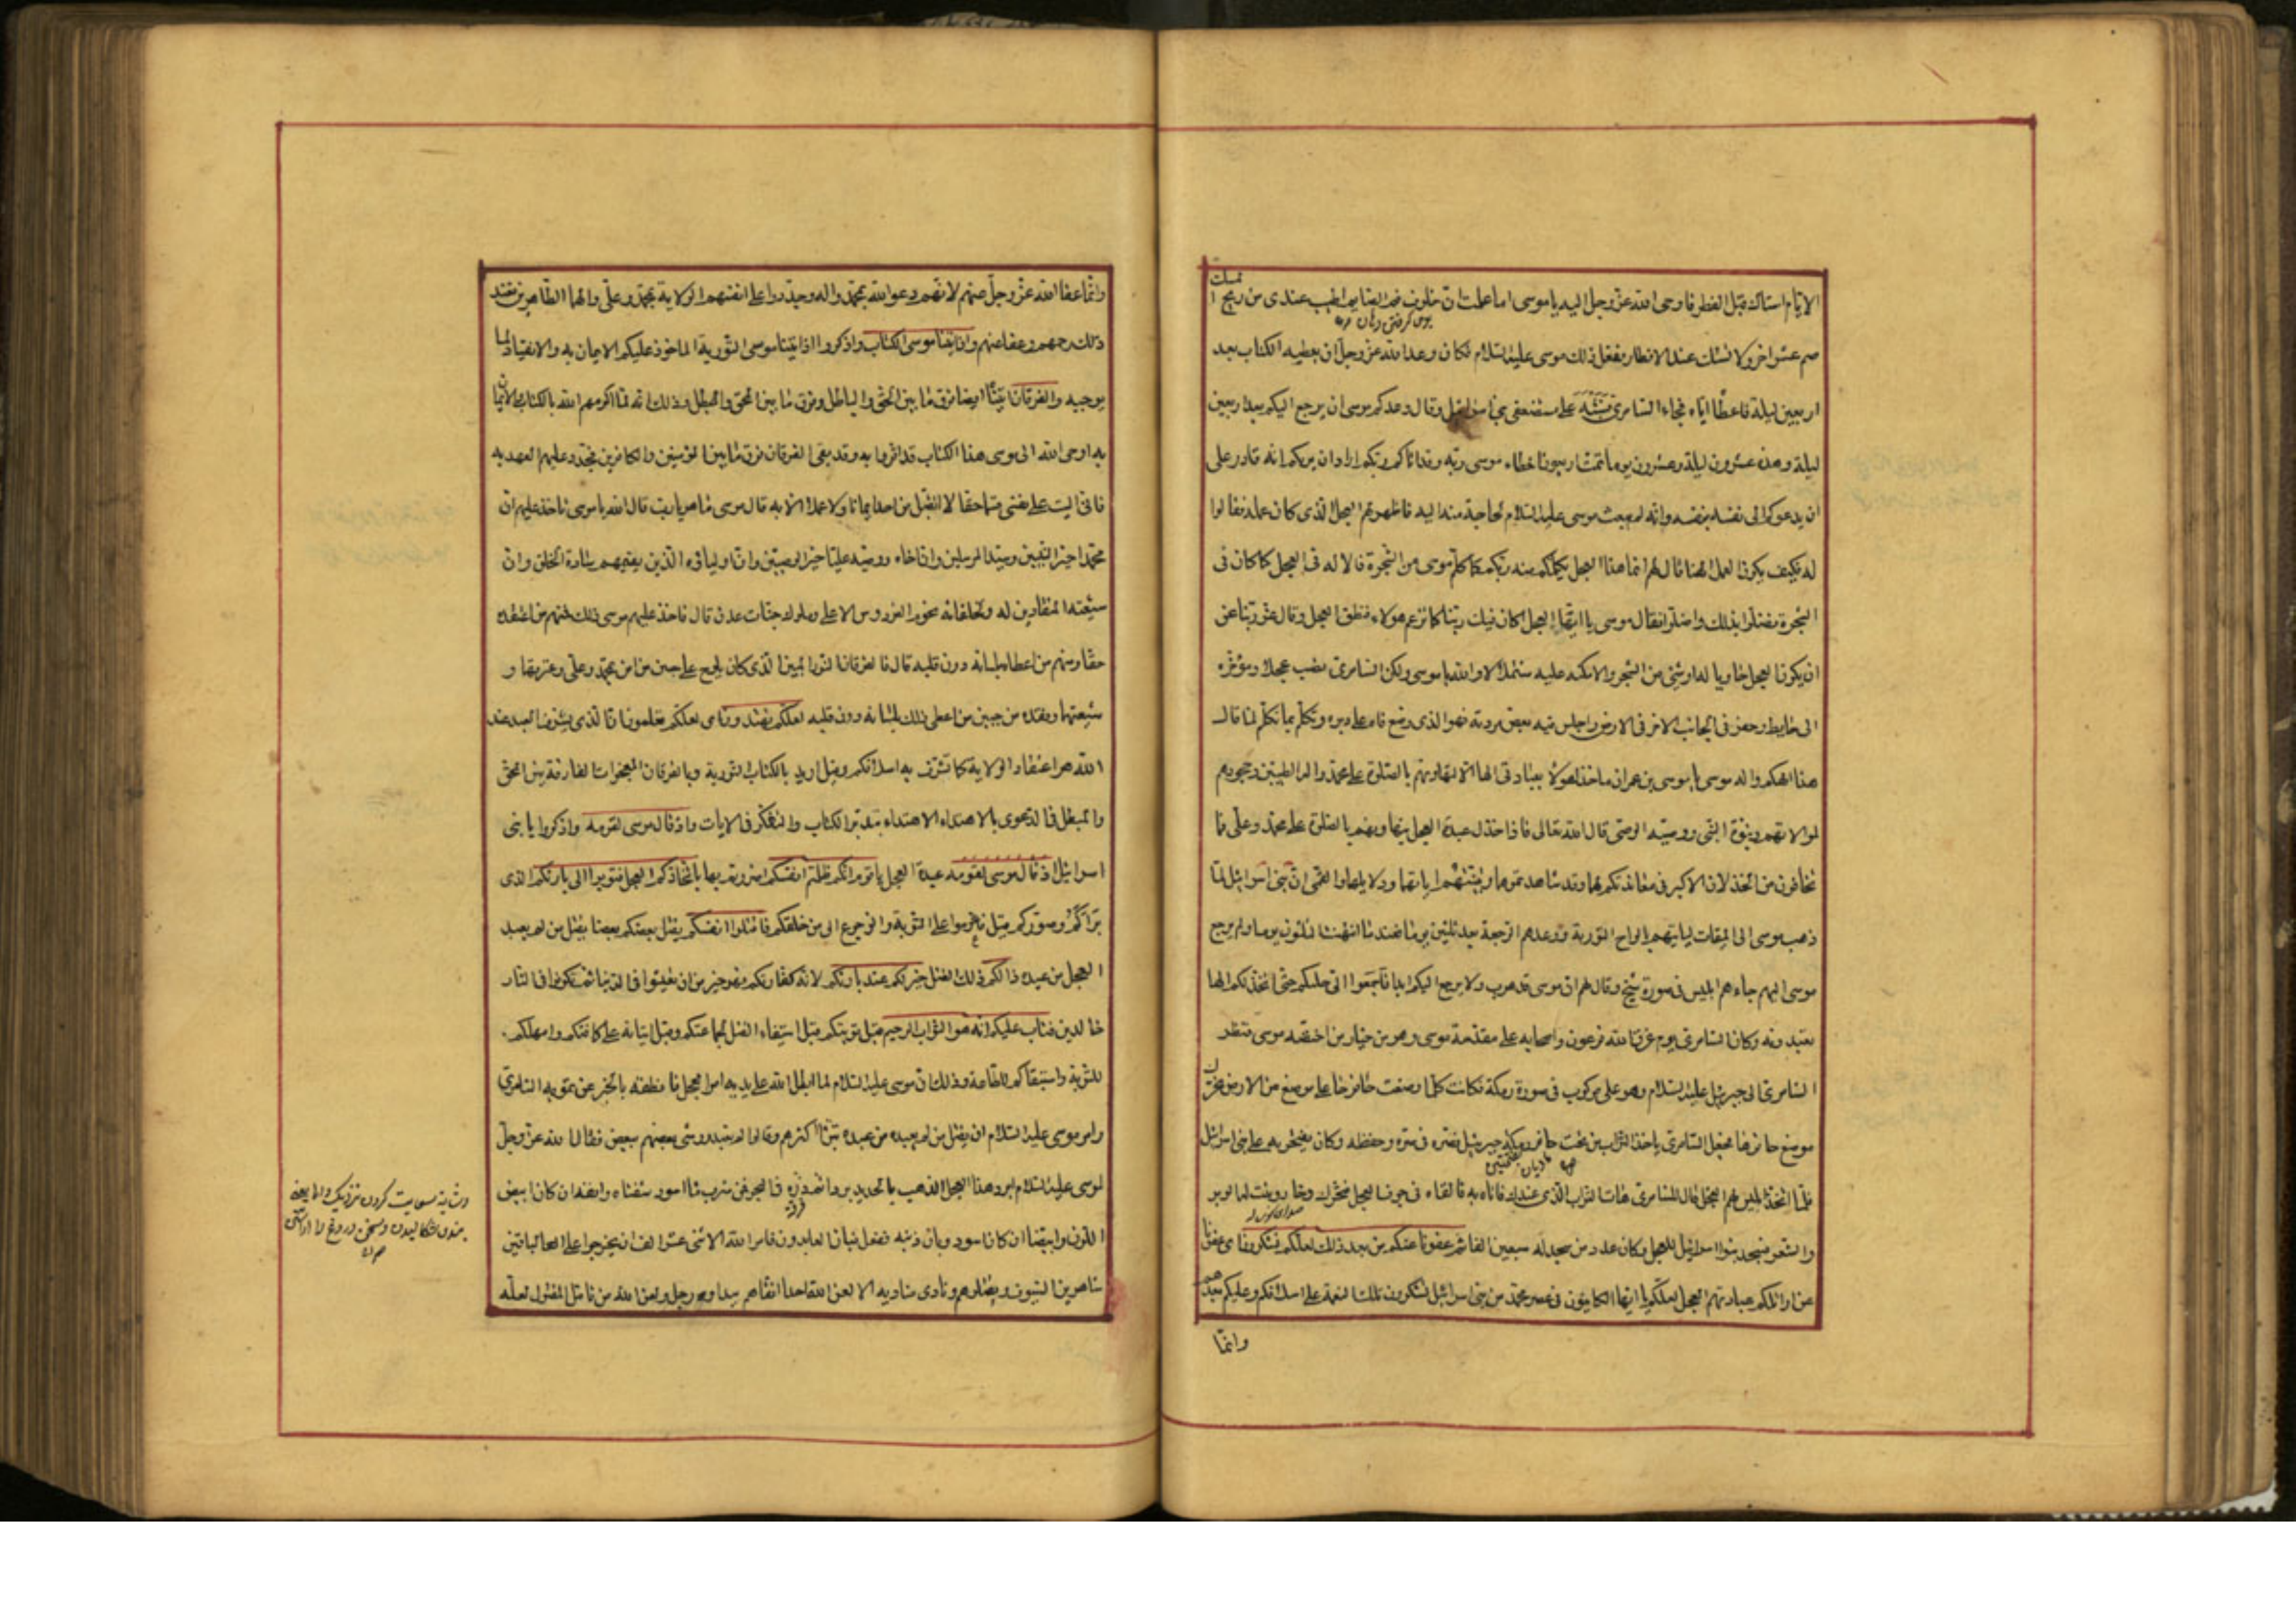 الايام استاك قبل الفطر فاوحى الله عز وجل اليه يا موسى اما علمت ان خلوف فم الصايم اطيب عندى من ريح ا
لمسك
صم عشرا اخر ولا تستك عند الافطار ففعل ذلك موسى عليه السلام فكان وعد الله عز وجل ان يعطيه الكتاب بعد
اربعين ليلة فاعطا اياه فجاء السامرى فشبه على مستضعفى بنى اسرائيل وقال وعدكم موسى ان يرجع اليكم بعد اربعين
ليلة وهذه عشرون ليلة وعشرون يوما تمت اربعون اخطاء موسى ربه وقد اتاكم ربكم اراد ان يريكم انه قادر على
ان يدعوكم الى نفسه بنفسه وانه لم يبعث موسى عليه السلام لحاجة منه اليه فاظهر لهم العجل الذى كان عمله فقالوا
له فكيف يكون العجل الهنا قال لهم انما هذا العجل يكلمكم منه ربكم كما كلم موسى من الشجرة فالاله فى العجل كما كان فى
الشجرة فضلوا بذلك واضلوا فقال موسى يا ايها العجل اكان فيك ربنا كما يزعم هؤلاء فنطق العجل وقال عز ربنا عن
ان يكون العجل حاويا له او شئ من الشجر والامكنه عليه مشتملا لا والله يا موسى ولكن السامرى نصب عجلا ومؤخره
الى حايط وحفر فى الجانب الاخر فى الارض واجلس فيه بعض مردته فهو الذى وضع فاه على دبره وتكلم بما تكلم لما قال
هذا الهكم واله موسى يا موسى بن عمران ما خذل هؤلاء بعبادتى الها الا لتهاونهم بالصلوة على محمد واله الطيبين وجحودهم
لموالاتهم ونبوة النبى ووصية الوصى قال الله تعالى فاذا خذل عبدة العجل بتهاونهم بالصلوة على محمد وعلى فما
تخافون من الخذلان الاكبر فى معاندتكم لهما وقد شاهدتموهما وتبينتم اياتهما ودلايلهما والقمى ان بنى اسرائيل لما
ذهب موسى الى الميقات لياتيهم بالواح التورية ووعدهم الرجعة بعد ثلثين يوما فعند ما انتهت الثلثون يوما ولم يرجع
موسى اليهم جاءهم ابليس فى صورة شيخ وقال لهم ان موسى قد هرب ولا يرجع اليكم ابدا فاجمعوا الى حليكم حتى اتخذ لكم الها
تعبدونه وكان السامرى يوم غرق الله فرعون واصحابه على مقدمة موسى وهو من خيار من اختصه موسى فنظر
السامرى الى جبرئيل عليه السلام وهو على مركوب فى صورة رمكة فكانت كلما وضعت حافرها على موضع من الارض تحرك
موضع حافرها فجعل السامرى ياخذ التراب من تحت حافر رمكة جبرئيل فصره فى صرة وحفظه وكان يفتخر به على بنى اسرائيل
فلما اتخذ ابليس لهم العجل قال للسامرى هات التراب الذى عندك فاتاه به فالقاه فى جوف العجل فتحرك وخار ونبت له الوبر
والشعر فسجد بنوا اسرائيل للعجل وكان عدد من سجد له سبعين الفا ثم عفونا عنكم من بعد ذلك لعلكم تشكرون اى عفونا
عن اوائلكم عبادتهم العجل لعلكم يا ايها الكاينون فى عصر محمد من بنى اسرائيل تشكرون تلك النعمة على اسلافكم وعليكم بعدهم
وانما
وانما عفا الله عز وجل عنهم لانهم دعوا الله بمحمد واله وجددوا على انفسهم الولاية بمحمد وعلى والهما الطاهرين فعند
ذلك رحمهم وعفا عنهم واذ اتينا موسى الكتاب واذكروا اذ اتينا موسى التورية الماخوذ عليكم الايمان به والانقياد لما
يوجبه والفرقان اتيناه ايضا فرق ما بين الحق والباطل وفرق ما بين المحق والمبطل وذلك انه لما اكرمهم الله بالكتاب والايمان
به اوحى الله الى موسى هذا الكتاب قد اقروا به وقد بقى الفرقان فرق ما بين المؤمنين والكافرين فجدد عليهم العهد به
فانى اليت على نفسى قسما حقا لا اتقبل من احد ايمانا ولا عملا الا به قال موسى ما هو يا رب قال الله يا موسى تاخذ عليهم ان
محمدا خير النبيين وسيد المرسلين وان اخاه ووصيه عليا خير الوصيين وان اولياءه الذين يقيمهم سادة الخلق وان
شيعته المنقادين له ولخلفائه نجوم الفردوس الاعلى وملوك جنات عدن قال فاخذ عليهم موسى ذلك فمنهم من اعتقده
حقا ومنهم من اعطاه بلسانه دون قلبه قال فالفرقان النور المبين الذى كان يلوح على جبين من امن بمحمد وعلى وعترتهما و
شيعتهما وفقده من جبين من اعطى ذلك بلسانه دون قلبه لعلكم تهتدون اى لعلكم تعلمون ان الذى يشرف العبد عند
الله هو اعتقاد الولاية كما تشرف به اسلافكم وقيل اريد بالكتاب التورية وبالفرقان المعجزات الفارقة بين المحق
والمبطل فى الدعوى بالاهتداء الاهتداء بتدبر الكتاب والتفكر فى الايات واذ قال موسى لقومه واذكروا يا بنى
اسرائيل اذ قال موسى لقومه عبدة العجل يا قوم انكم ظلمتم انفسكم اضررتم بها باتخاذكم العجل فتوبوا الى بارئكم الذى
براكم وصوركم قيل فاعزموا على التوبة والرجوع الى من خلقكم فاقتلوا انفسكم يقتل بعضكم بعضا يقتل من لم يعبد
العجل من عبده ذالكم ذلك القتل خير لكم عند بارئكم لانه كفارتكم فهو خير من ان تعيشوا فى الدنيا ثم تكونوا فى النار
خالدين فتاب عليكم انه هو التواب الرحيم قبل توبتكم قبل استيفاء القتل لجماعتكم وقبل اتيانه على كافتكم وامهلكم
للتوبة واستبقاكم للطاعة وذلك ان موسى عليه السلام لما ابطل الله على يديه امر العجل فانطقه بالخبر عن تمويه السامرى
وامر موسى عليه السلام ان يقتل من لم يعبده من عبده تبرا اكثرهم وقالوا لم نعبد ووشى بعضهم ببعض فقال الله عز وجل
لموسى عليه السلام ابرد هذا العجل الذهب بالحديد بردا ثم ذره فى البحر فمن شرب ماءه اسود شفتاه وانفه ان كان ابيض
اللون وابيضتا ان كان اسود وبان ذنبه ففعل فبان العابدون فامر الله الاثنى عشر الف ان يخرجوا على الباقين
شاهرين السيوف ويقتلوهم ونادى مناديه الا لعن الله احدا اتقاهم بيد او رجل ولعن الله من تامل المقتول لعله